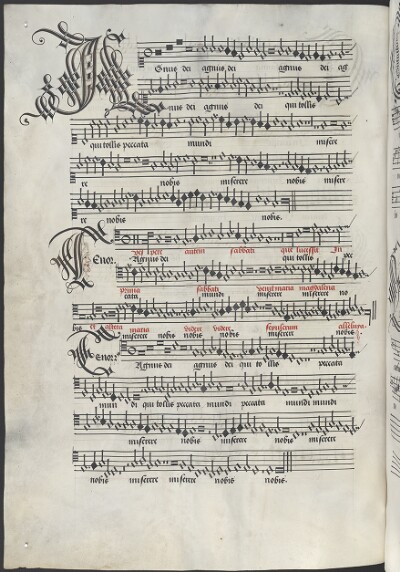 Gnus dei agnus dei agnus dei ag
nus dei agnus dei qui tollis
qui tollis peccata mundi misere
re nobis miserere nobis misere
re nobis nobis.
Tenor.
Vespere autem sabbati que lucescit In
Agnus dei qui tollis pec
Prima sabbati venit maria magdalena
cata mundi miserere miserere no
bis et altera maria videre videre sepulcrum alleluya.
miserere nobis nobis nobis miserere nobis
Tenor
Agnus dei agnus dei qui tollis peccata
mun di qui tollis peccata mundi peccata mundi mundi
miserere nobis miserere nobis miserere
nobis miserere miserere nobis nobis.